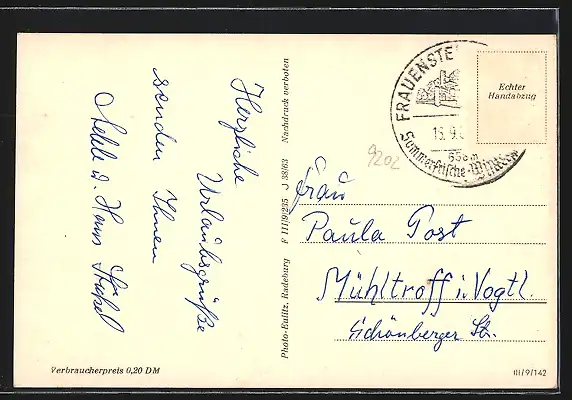 Herzliche
Urlaubsgrüße
senden Ihnen
u. Hans
Photo-Eulitz, Radeburg F III/9/235 J 38/63 Nachdruck verboten
FRAUENSTE
15.9.
650 m
Sommerfrische-
Echter
Handabzug
9202
Frau
Paula Post
Mühltroff i. Vogtl.
Schönberger Str.
Verbraucherpreis 0,20 DM
III/9/142